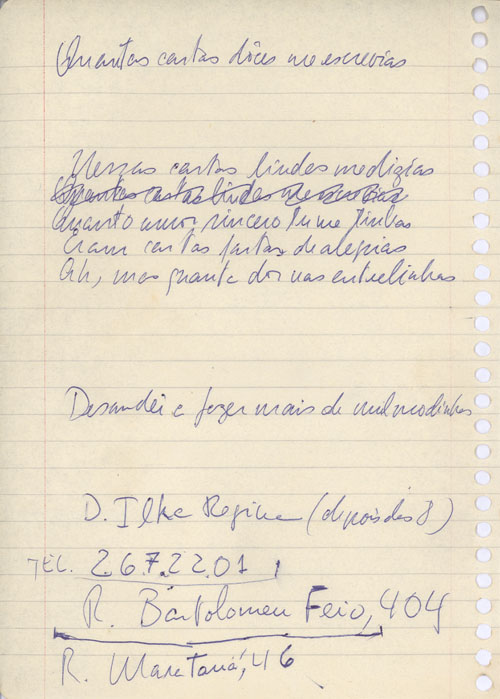 Quantas cartas doces me escrevias
Nessas cartas lindas me dizias
Quantas cartas lindas me escrevias
Quanto amor, sincero tu me tinhas
Eram cartas fartas de alegrias
Ah, mas quanta dor nas entrelinhas
Desandei a fazer mais de mil modinhas
D. Ilka Regina (depois das 8)
TEL. 267.2201
R. Bartolomeu Feio, 404
R. Maratauá, 46